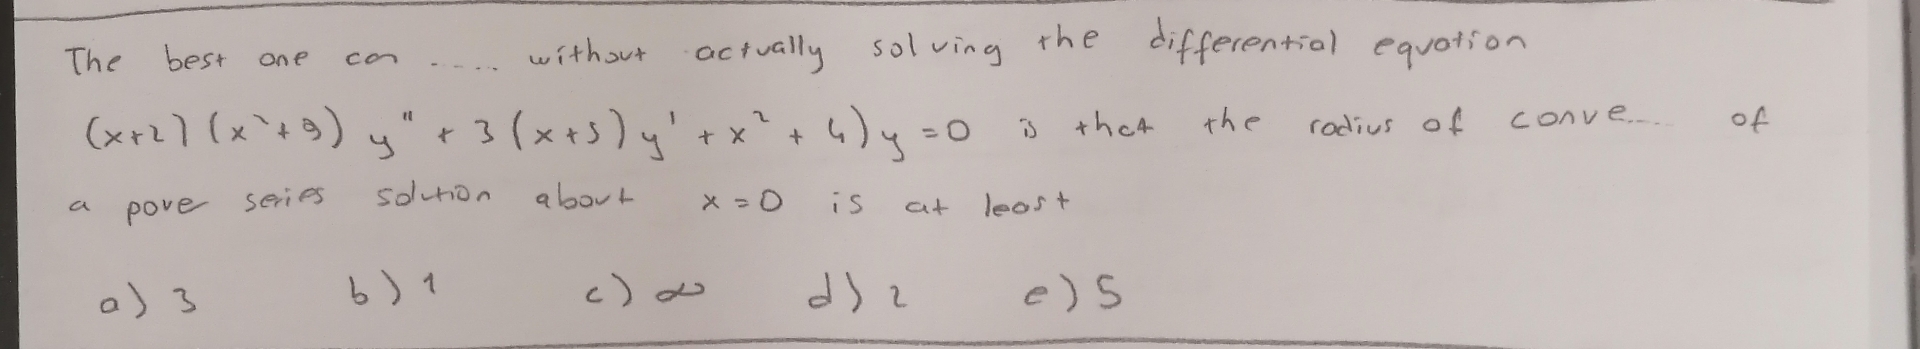 The best one can ..... without actually solving the differential equation
(x+2) (x²+9) y" + 3 (x+5) y' + x² + 4) y = 0 is that the radius of conve.... of
a pove series solution about x = 0 is at least
a) 3 b) 1 c) ∞ d) 2 e) 5